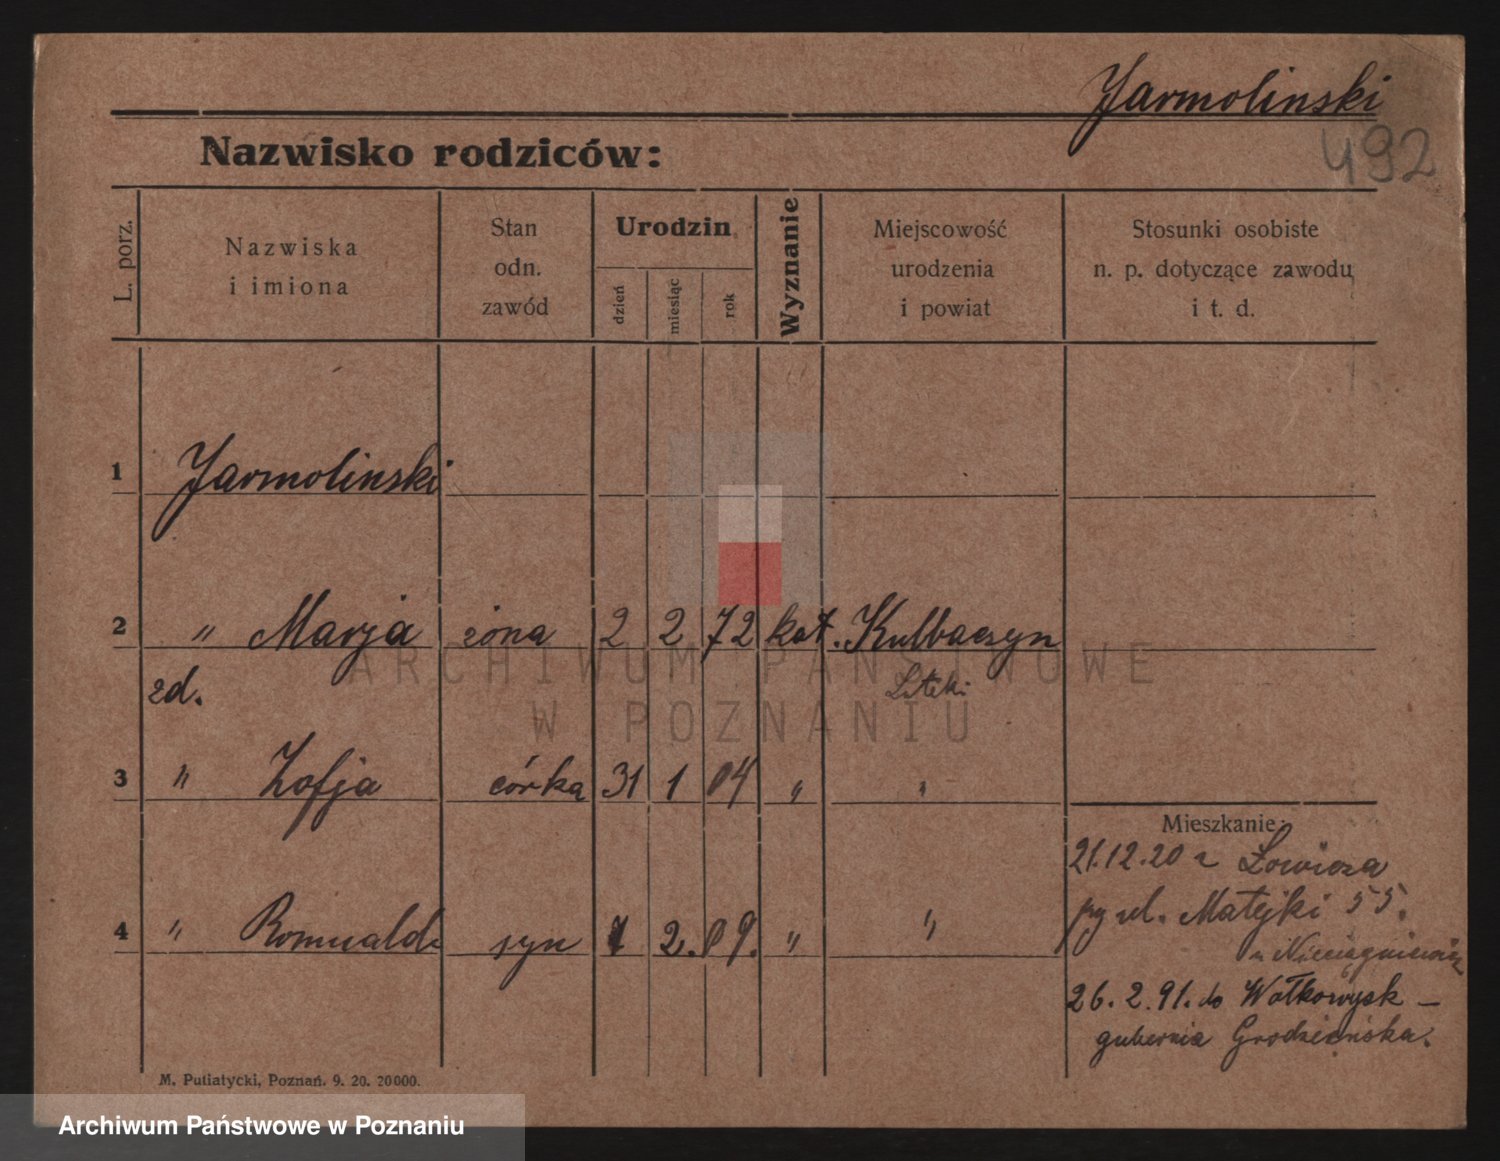 Jarmolinski
492
Nazwisko rodziców:
L. porz.
Nazwiska
i imiona
Stan
odn.
zawód
Urodzin
dzień
miesiąc
rok
Wyznanie
Miejscowość
urodzenia
i powiat
Stosunki osobiste
n. p. dotyczące zawodu
i t. d.
1 Jarmolinski
2 " Marja żona 2 2 72 kat. Kulbaczyn
zd.
3 " Zofja córka 31 1 04 " "
4 " Romuald syn 7 2. 09. " "
Mieszkanie:
21.12.20 z Łowicza
przy ul. Matejki 55.
26. 2. 21. do Wołkowysk –
gubernia Grodzieńska.
M. Putiatycki, Poznań. 9. 20. 20000.
ARCHIWUM PAŃSTWOWE
W POZNANIU
Archiwum Państwowe w Poznaniu